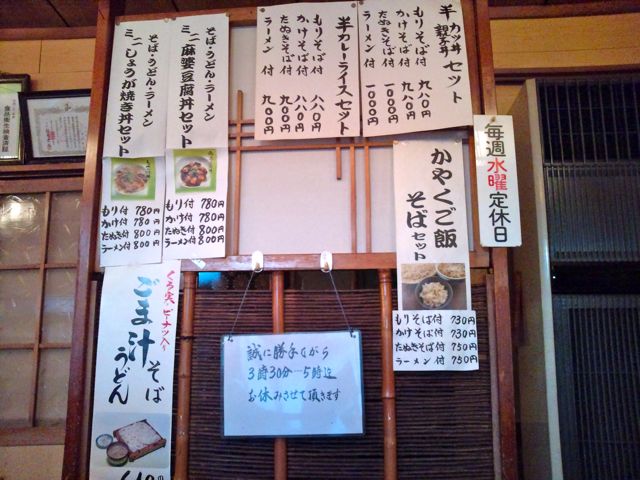 半カツ丼
親子丼
セット
もりそば付 九八〇円
かけそば付 九八〇円
たぬきそば付 一〇〇〇円
ラーメン付 一〇〇〇円
半カレーライスセット
もりそば付 八八〇円
かけそば付 八八〇円
たぬきそば付 九〇〇円
ラーメン付 九〇〇円
そば・うどん・ラーメン
ミニ麻婆豆腐丼セット
もり付 780円
かけ付 780円
たぬき付 800円
ラーメン付 800円
そば・うどん・ラーメン
ミニしょうが焼き丼セット
もり付 780円
かけ付 780円
たぬき付 800円
ラーメン付 800円
毎週水曜定休日
かやくご飯
そばセット
もりそば付 730円
かけそば付 730円
たぬきそば付 750円
ラーメン付 750円
くるみ・ピーナッツ入り
ごま汁そば
うどん
誠に勝手ながら
3時30分…5時迄
お休みさせて頂きます